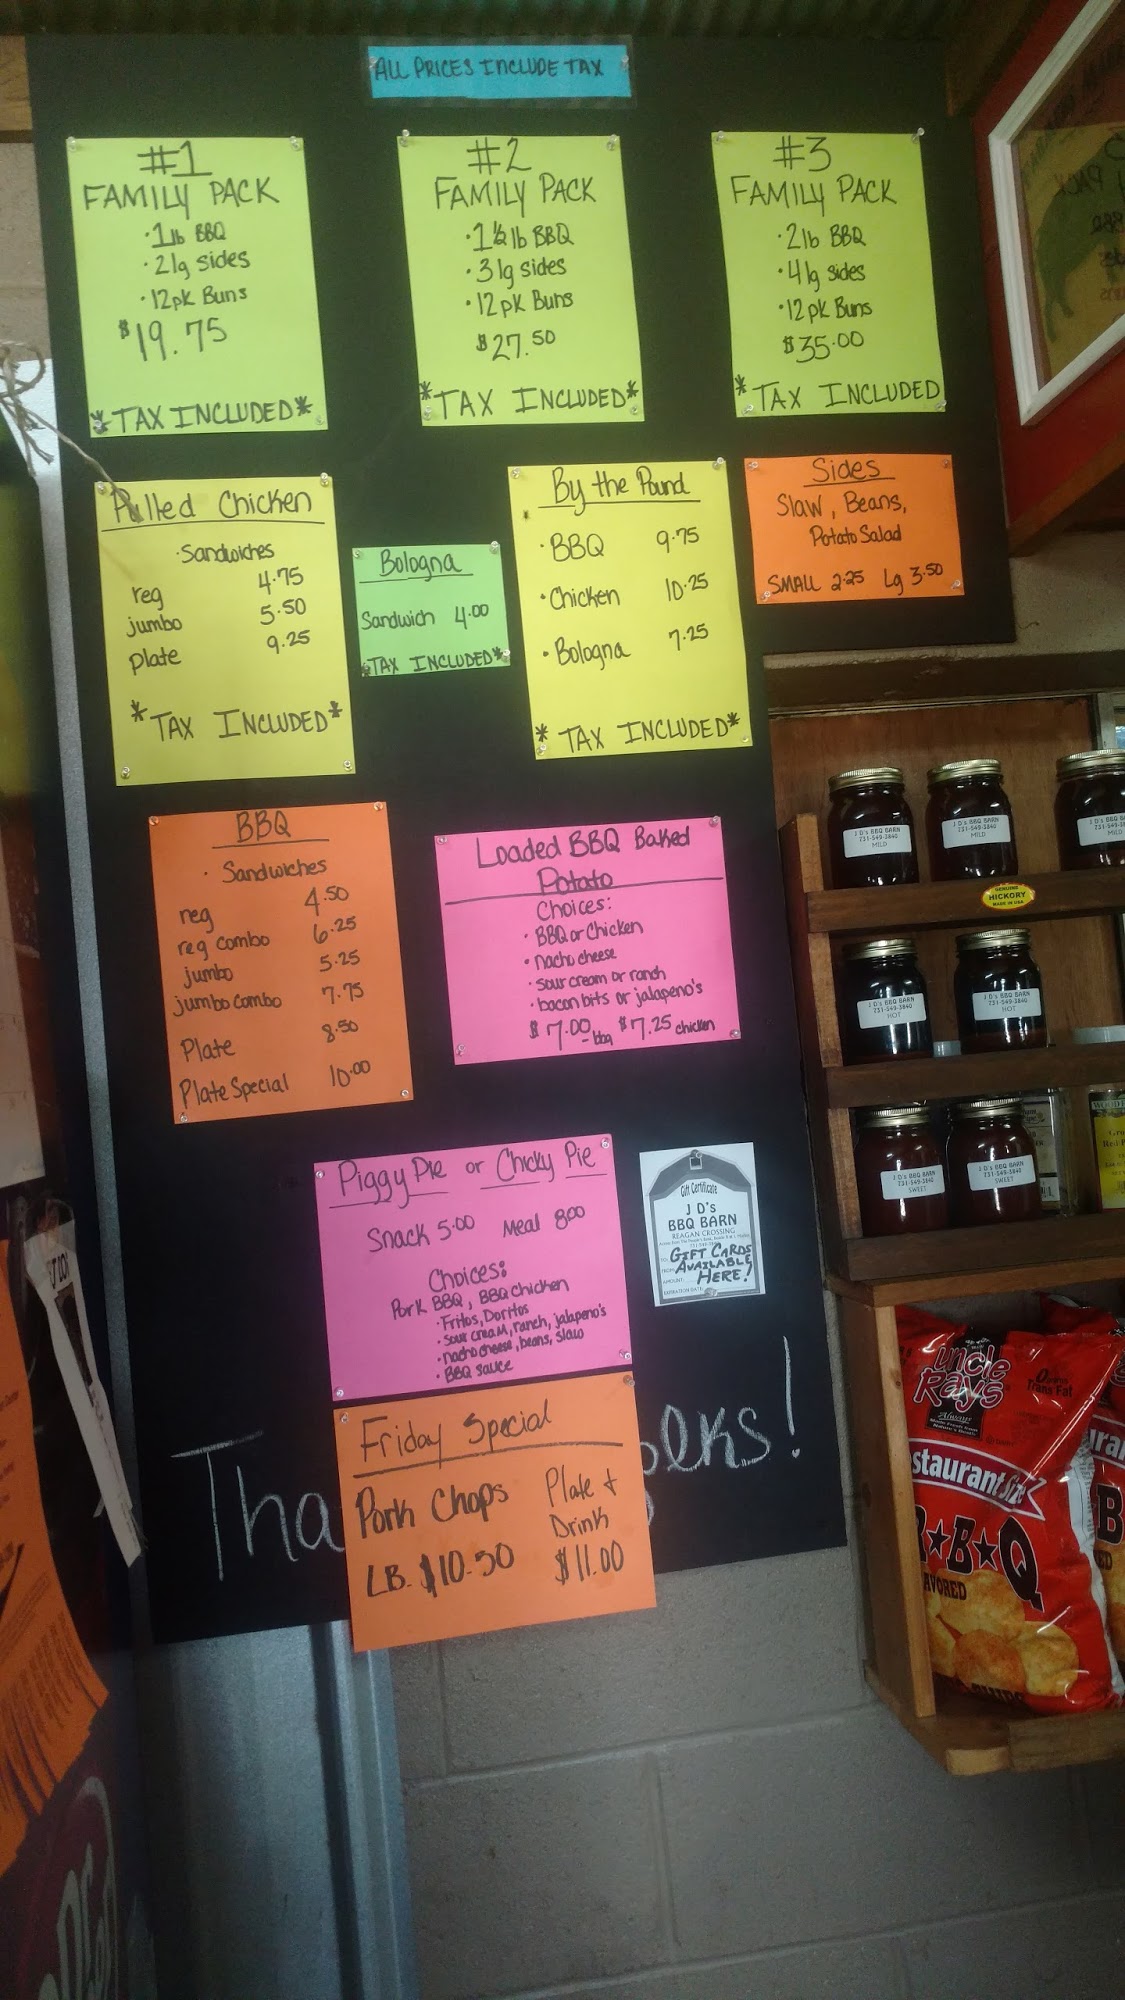 ALL PRICES INCLUDE TAX
#1
FAMILY PACK
• 1lb BBQ
• 2lg sides
• 12pk Buns
$19.75
*TAX INCLUDED*
#2
FAMILY PACK
• 1½ lb BBQ
• 3lg sides
• 12pk Buns
$27.50
*TAX INCLUDED*
#3
FAMILY PACK
• 2lb BBQ
• 4lg sides
• 12pk Buns
$35.00
*TAX INCLUDED
Pulled Chicken
• Sandwiches
reg 4.75
jumbo 5.50
plate 9.25
*TAX INCLUDED*
Bologna
Sandwich 4.00
*TAX INCLUDED*
By the Pound
• BBQ 9.75
• Chicken 10.25
• Bologna 7.25
*TAX INCLUDED*
Sides
Slaw, Beans,
Potato Salad
SMALL 2.25 Lg 3.50
BBQ
• Sandwiches
reg 4.50
reg combo 6.25
jumbo 5.25
jumbo combo 7.75
Plate 8.50
Plate Special 10.00
Loaded BBQ Baked
Potato
Choices:
• BBQ or Chicken
• nacho cheese
• sour cream or ranch
• bacon bits or jalapeno's
$7.00 bbq $7.25 chicken
Piggy Pie or Chicky Pie
Snack 5.00 Meal 8.00
Choices:
Pork BBQ, BBQ Chicken
• Fritos, Doritos
• Sour cream, ranch, jalapeno's
• nacho cheese, beans, slaw
• BBQ sauce
Gift Certificate
J D's
BBQ BARN
REAGAN CROSSING
GIFT CARDS
AVAILABLE
HERE!
AMOUNT:
EXPIRATION DATE:
Friday Special
Pork Chops
LB. $10.50
Plate +
Drink
$11.00
Tha
olks!
J D's BBQ BARN
731-549-3840
MILD
J D's BBQ BARN
731-549-3840
MILD
J D's BBQ BARN
731-549-3840
MILD
GENUINE
HICKORY
MADE IN USA
J D's BBQ BARN
731-549-3840
HOT
J D's BBQ BARN
731-549-3840
HOT
J D's BBQ BARN
731-549-3840
SWEET
J D's BBQ BARN
731-549-3840
SWEET
uncle
Rays
0 grams
Trans Fat
Always
staurant Siz
R★B★Q
AVORED